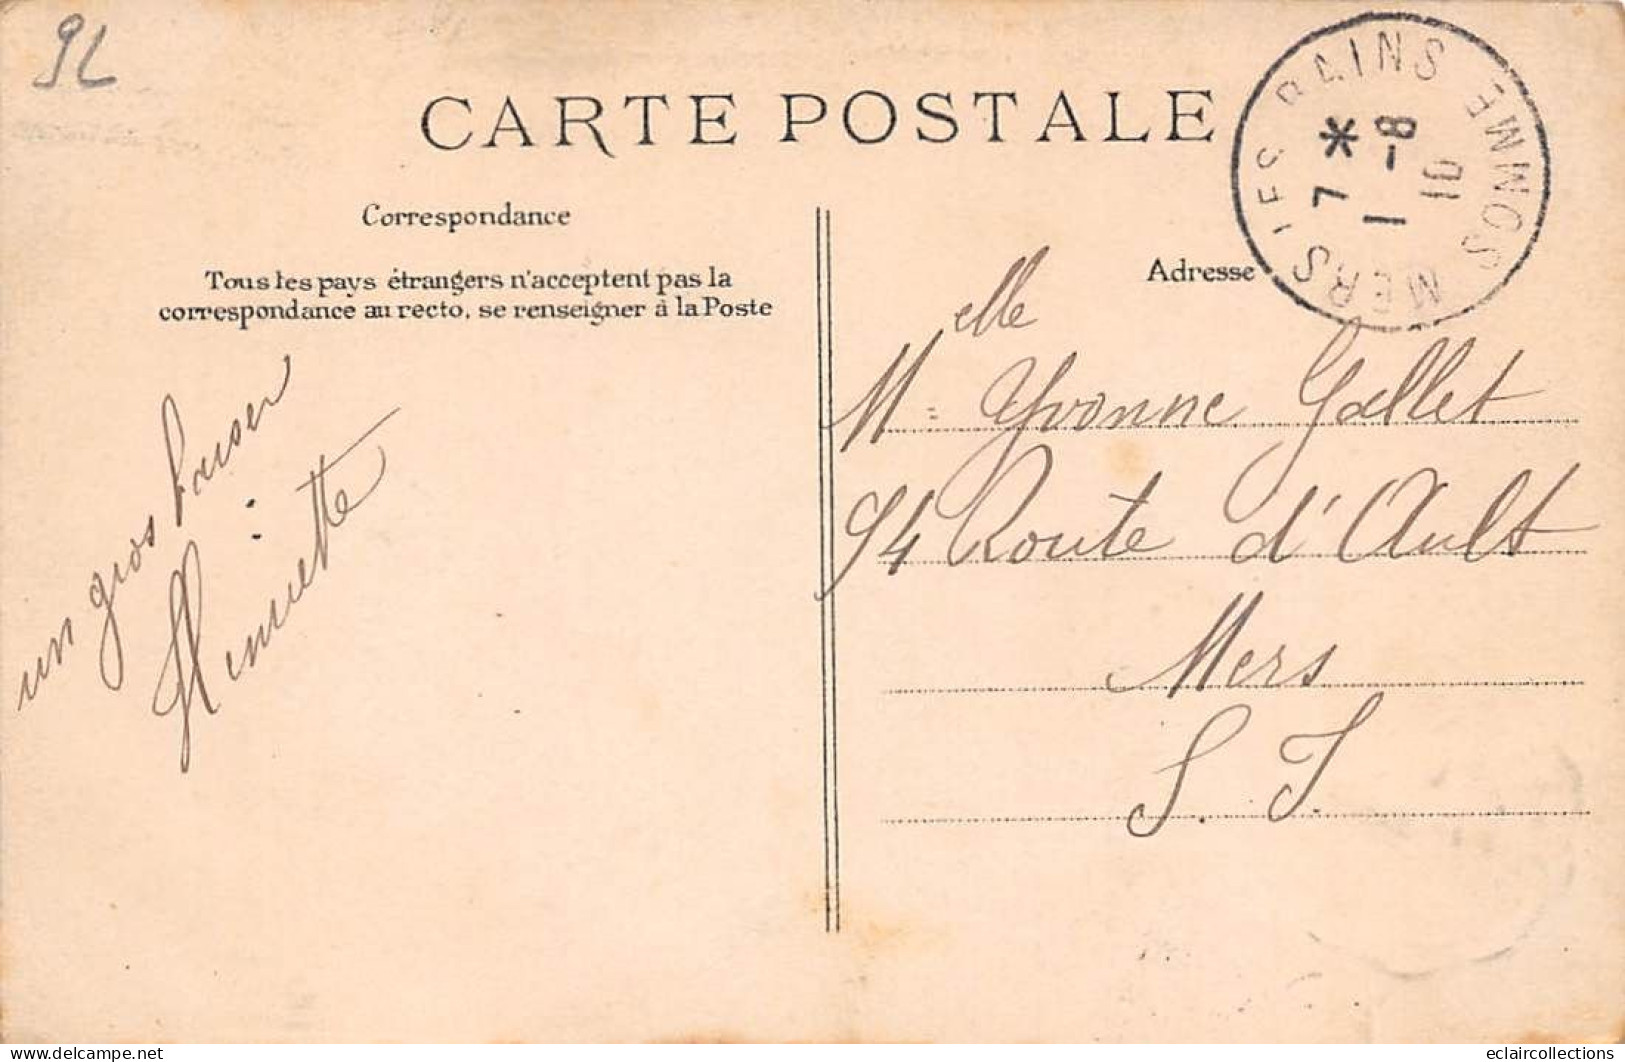 92
CARTE POSTALE
MERS LES BAINS SOMME
7 *
1 -8
10
Correspondance
Tous les pays étrangers n'acceptent pas la
correspondance au recto, se renseigner à la Poste
un gros baiser
Henriette
Adresse
Melle Yvonne Gallet
94 Route d'Ault
Mers
S. I.
eclaircollections